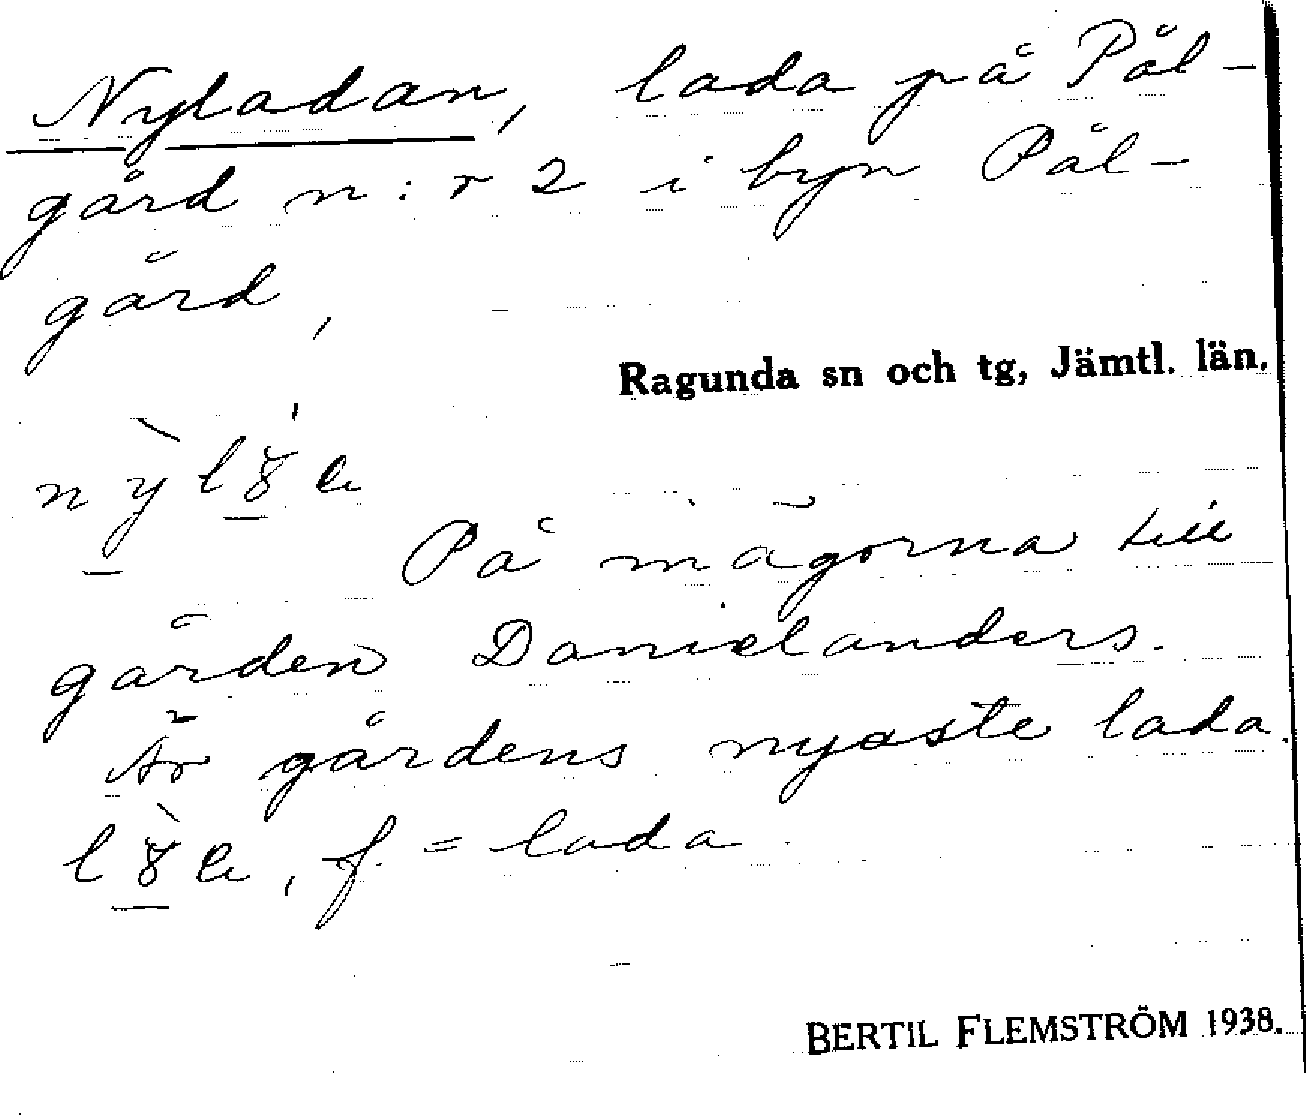 Nyladan, lada på Pål-
gård n:r 2 i byn Pål-
gård,
Ragunda sn och tg, Jämtl. län.
På mägorna till
gården Danielanders.
Är gårdens nyaste lada.
f. = lada
BERTIL FLEMSTRÖM 1938.